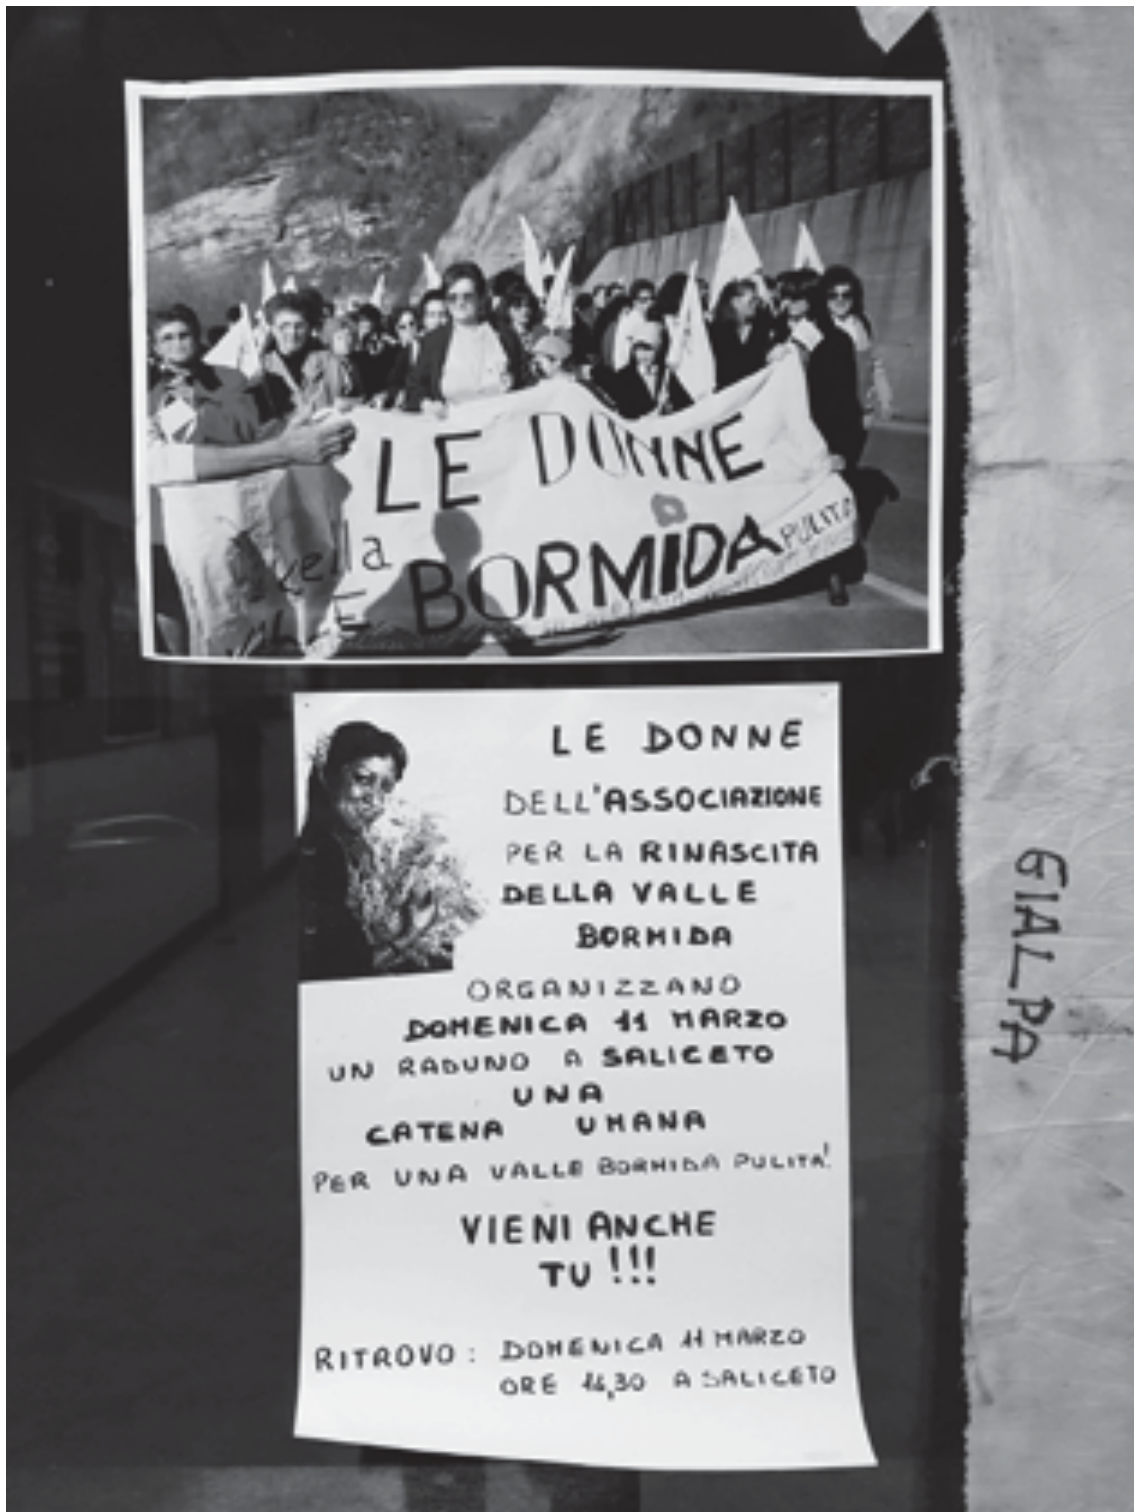 LE DONNE
della
BORMIDA PULITO
LE DONNE
DELL'ASSOCIAZIONE
PER LA RINASCITA
DELLA VALLE
BORMIDA
ORGANIZZANO
DOMENICA 11 MARZO
UN RADUNO A SALICETO
UNA
CATENA UMANA
PER UNA VALLE BORMIDA PULITA!
VIENI ANCHE
TU !!!
RITROVO: DOMENICA 11 MARZO
ORE 14,30 A SALICETO
GIALPA